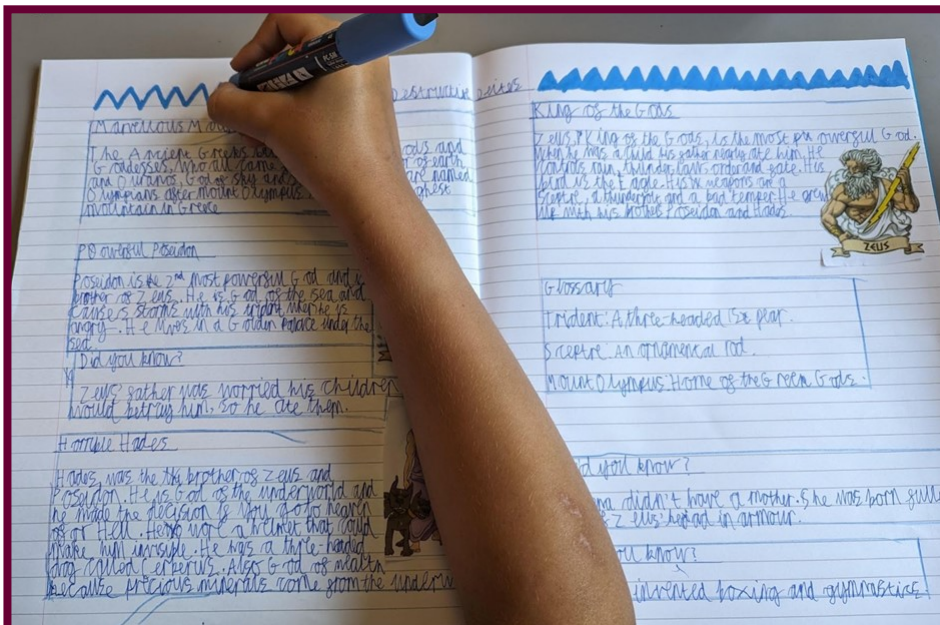 Destructive Deities
Marvellous M
The Ancient Greeks
Goddesses, who all came
and Ouranos, God of sky and
Olympians after Mount Olympus
mountain in Greece
POowerful Poseidon
Poseidon is the 2nd most powerful God and
brother of Zeus. He is God of the sea and
causes storms with his trident when he is
angry. He lives in a Golden Palace under the
sea.
Did you know?
Zeus' father was worried his children
would betray him, so he ate them.
Horrible Hades
Hades, was the brother of Zeus and
Poseidon. He is God of the underworld and
he made the decision if you go to heaven
or Hell. He wore a helmet that could
make him invisible. He has a three-headed
dog called Cerberus. Also God of wealth
because precious minerals come from the underw
King of the Gods
Zeus, King of the Gods, is the most powerful God.
When he was a child his father nearly ate him. He
controls rain, thunder, laws order and fate. His
bird is the Eagle. His weapons are a
sceptre, a thunderbolt and a bad temper. He grew
up with his brothers Poseidon and Hades
ZEUS
Glossary
Trident: A three-headed spear.
Sceptre: An ornamental rod.
Mount Olympus: Home of the Greek Gods.
did you know?
didn't have a mother. She was born full
Zeus' head in armour.
ou know?
invented boxing and gymnastics.